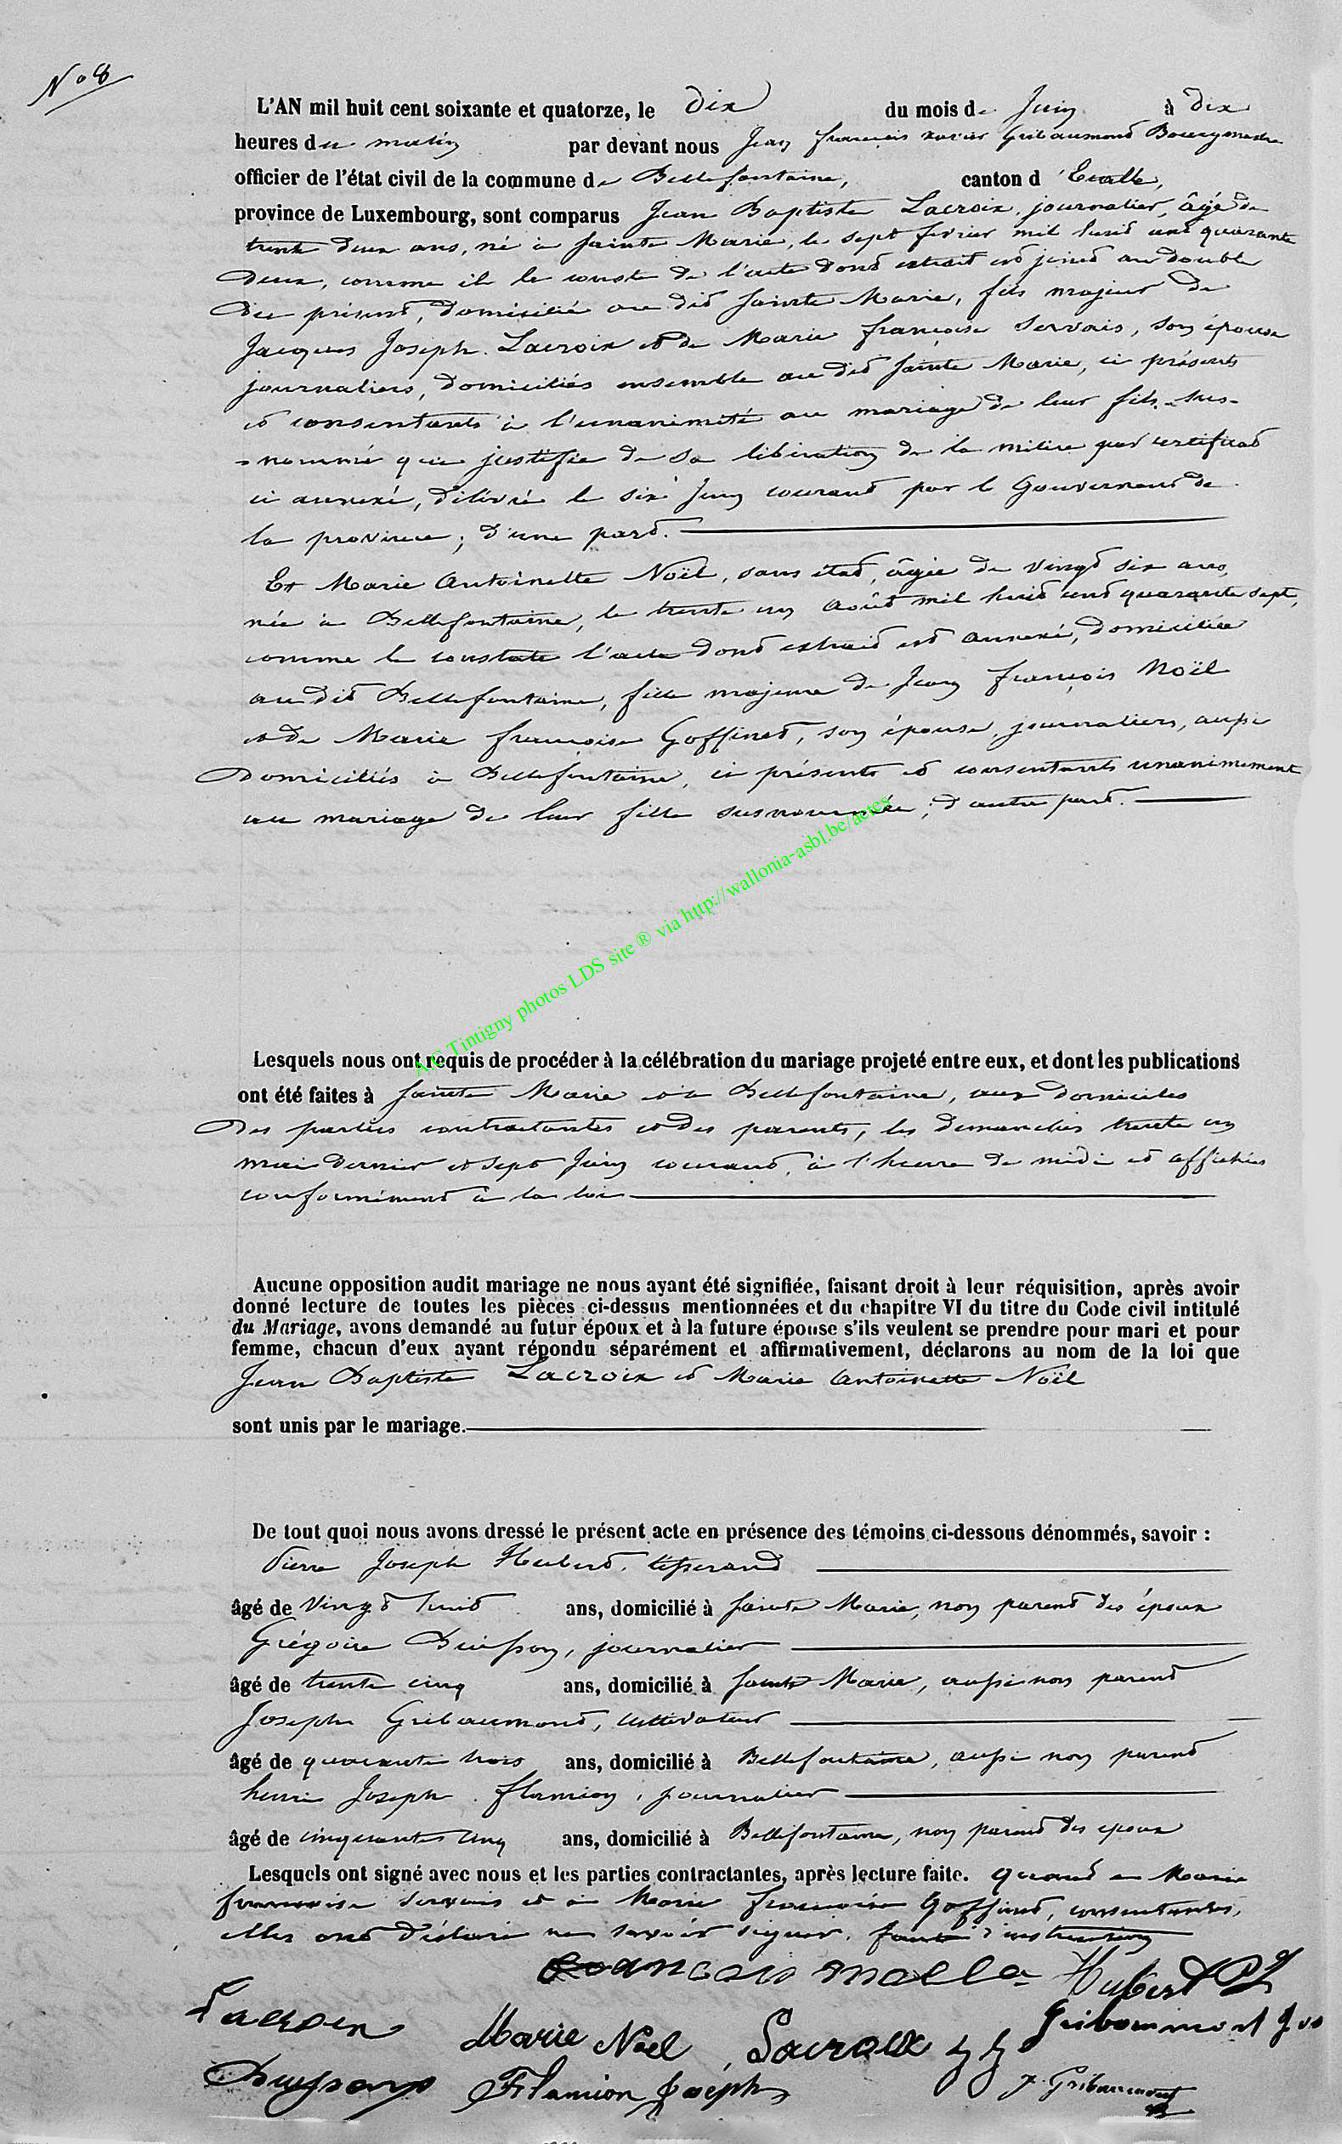 N° 8
L'AN mil huit cent soixante et quatorze, le dix du mois de Juin à dix
heures du matin par devant nous Jean françois xavier Gribaumond Bourgmestre
officier de l'état civil de la commune de Bellefontaine, canton d'Etalle,
province de Luxembourg, sont comparus Jean Baptiste Lacroix, journalier, âgé de
trente deux ans, né à Sainte Marie, le sept fevrier mil huit cent quarante
deux, comme il le conste de l'acte dont extrait est joint au double
du présent, domicilié au dit Sainte Marie, fils majeur de
Jacques Joseph Lacroix et de Marie françoise Servais, son épouse
journaliers, domiciliés ensemble au dit Sainte Marie, ci présents
et consentants à l'unanimité au mariage de leur fils sus-
-nommé qui justifie de sa libération de la milice par certificat
ci annexé, délivré le six Juin courant par le Gouverneur de
la province; d'une part.
Et Marie Antoinette Noël, sans état, âgée de vingt six ans,
née à Bellefontaine, le trente un Août mil huit cent quarante sept,
comme le constate l'acte dont extrait est annexé, domiciliée
au dit Bellefontaine, fille majeure de Jean françois Noël
et de Marie françoise Goffinet, son épouse, journaliers, aussi
domiciliés à Bellefontaine, ci présents et consentants unanimement
au mariage de leur fille susnommée; d'autre part.
A.C Tintigny photos LDS site ® via http://wallonia-asbl.be/actes
Lesquels nous ont requis de procéder à la célébration du mariage projeté entre eux, et dont les publications
ont été faites à Sainte Marie et à Bellefontaine, aux domiciles
des parties contractantes et des parents, les dimanches trente un
mai dernier et sept Juin courant, à l'heure de midi et affichées
conformément à la loi
Aucune opposition audit mariage ne nous ayant été signifiée, faisant droit à leur réquisition, après avoir
donné lecture de toutes les pièces ci-dessus mentionnées et du chapitre VI du titre du Code civil intitulé
du Mariage, avons demandé au futur époux et à la future épouse s'ils veulent se prendre pour mari et pour
femme, chacun d'eux ayant répondu séparément et affirmativement, déclarons au nom de la loi que
Jean Baptiste Lacroix et Marie Antoinette Noël
sont unis par le mariage.
De tout quoi nous avons dressé le présent acte en présence des témoins ci-dessous dénommés, savoir :
Pierre Joseph Hubert, tisserand
âgé de vingt huit ans, domicilié à Sainte Marie, non parent des époux
Grégoire Buisson, journalier
âgé de trente cinq ans, domicilié à Sainte Marie, aussi non parent
Joseph Gribaumont, cultivateur
âgé de quarante trois ans, domicilié à Bellefontaine, aussi non parent
henri Joseph Flamion, journalier
âgé de cinquante cinq ans, domicilié à Bellefontaine, non parent des epoux
Lesquels ont signé avec nous et les parties contractantes, après lecture faite. Quant à Marie
francoise Servais et à Marie françoise Goffinet, consentantes,
elles ont déclaré ne savoir signer, faute d'instruction
Hubert PJ
Lacroix Marie Noël Lacroix JJ Gribaumont Jos
Buisson Flamion Joseph F. Gribaumont